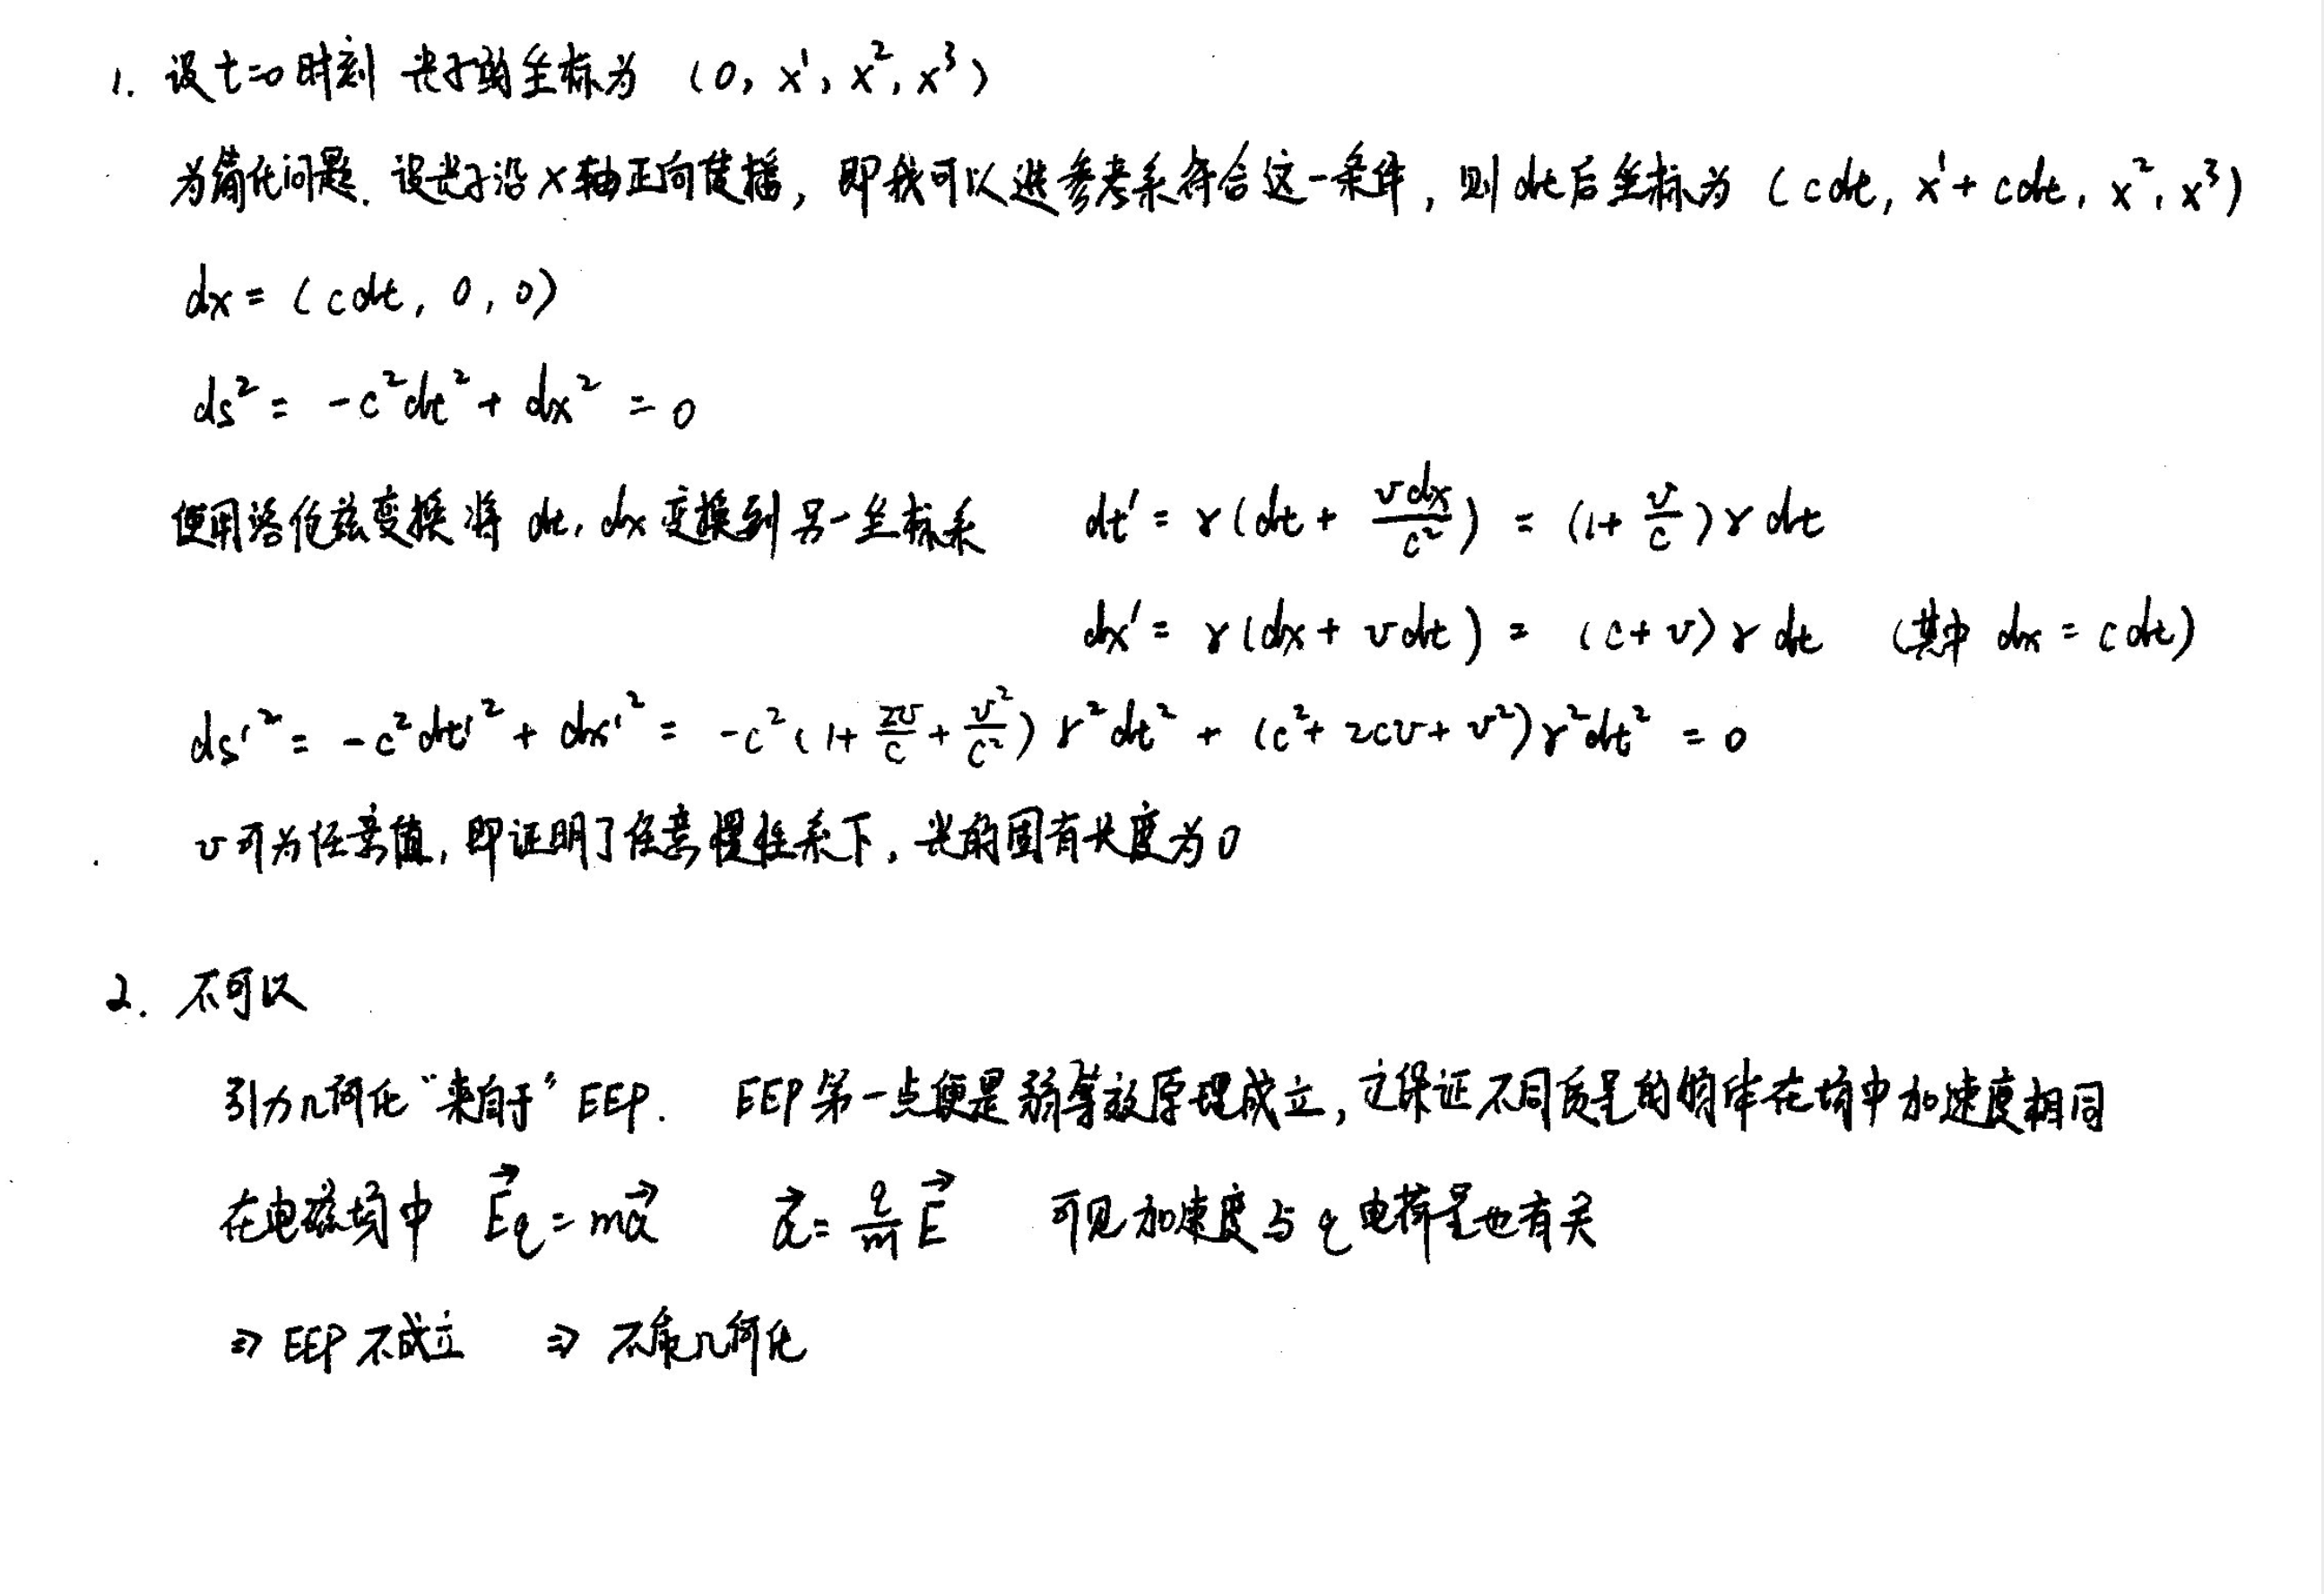 1. 设t=0时刻 光子的坐标为 (0, x¹, x², x³)
为简化问题. 设光子沿x轴正向传播, 即我可以选参考系符合这一条件, 则dt后坐标为 (cdt, x¹+cdt, x², x³)
dx = (cdt, 0, 0)
ds² = -c²dt² + dx² = 0
使用洛伦兹变换将 dt, dx 变换到另一坐标系 dt' = γ(dt + vdx/c²) = (1+ v/c)γdt
dx' = γ(dx + vdt) = (c+v)γdt (其中 dx = cdt)
ds'² = -c²dt'² + dx'² = -c²(1+ 2v/c + v²/c²)γ²dt² + (c²+2cv+v²)γ²dt² = 0
v可为任意值, 即证明了任意惯性系下, 光的固有长度为0
2. 不可以
引力几何化“来自于”EEP. EEP第一点便是弱等效原理成立, 它保证不同质量的物体在场中加速度相同
在电磁场中 E⃗q = ma⃗ a⃗ = q/m E⃗ 可见加速度与q电荷量也有关
⇒ EEP不成立 ⇒ 不能几何化